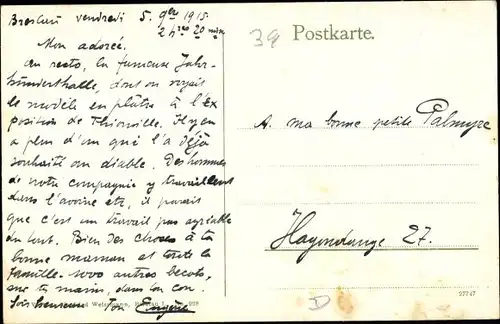 Breslau vendredi 5. 9bre 1915.
2 hres 20 min
Mon adorée,
au recto, la fameuse Jahr-
hunderthalle, dont on voyait
le modèle en plâtre à l'Ex
position de Thionville. Il y en
a plus d'un que l'a déjà
souhaité au diable. Des hommes
de notre compagnie y travaillent
dans l'avoine etc, il parait
que c'est un travail pas agréable
du tout. Bien des choses à ta
bonne maman et toute la
famille. 1000 autres becots,
sur ta main, dans ton cou.
Ton Eugène
39
Postkarte.
A. ma bonne petite Palmyre
Hagendange 27.
27747
D